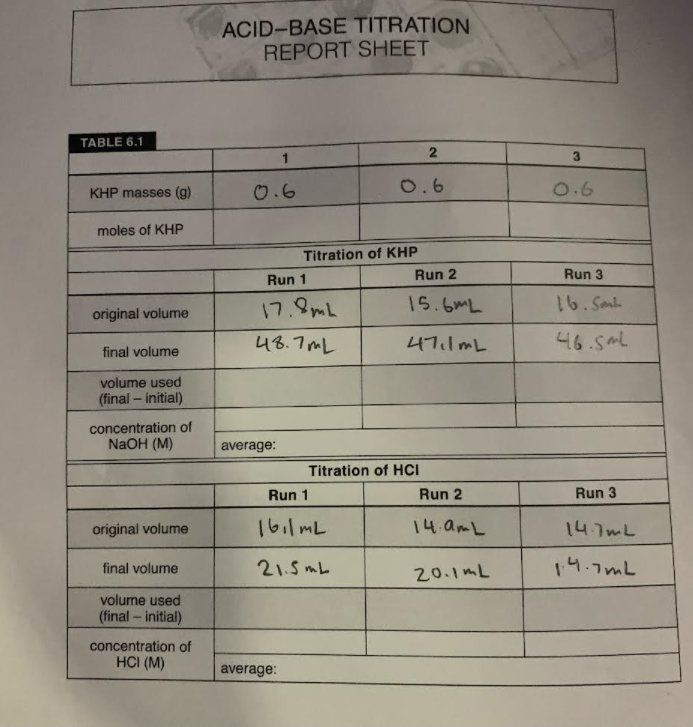 ACID–BASE TITRATION
REPORT SHEET
TABLE 6.1
1 2 3
KHP masses (g) 0.6 0.6 0.6
moles of KHP
Titration of KHP
Run 1 Run 2 Run 3
original volume 17.8mL 15.6mL 16.5mL
final volume 48.7mL 47.1mL 46.5mL
volume used
(final – initial)
concentration of
NaOH (M)
average:
Titration of HCl
Run 1 Run 2 Run 3
original volume 16.1mL 14.9mL 14.7mL
final volume 21.5mL 20.1mL 14.7mL
volume used
(final – initial)
concentration of
HCl (M)
average: